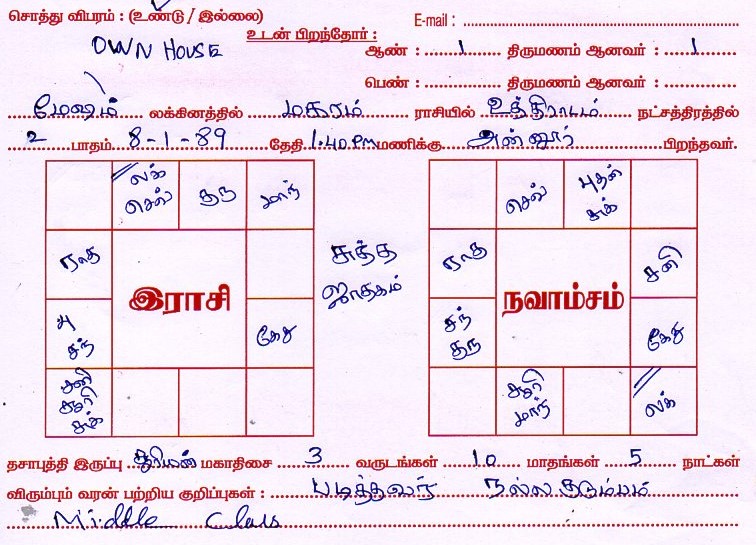 சொத்து விபரம் : (உண்டு / இல்லை)
E-mail :
OWN HOUSE
உடன் பிறந்தோர் :
ஆண் : 1 திருமணம் ஆனவர் : 1
பெண் : திருமணம் ஆனவர் :
மேஷம் லக்கினத்தில் மகரம் ராசியில் உத்திராடம் நட்சத்திரத்தில்
2 பாதம் 8-1-89 தேதி 1.40 PM மணிக்கு அன்னூர் பிறந்தவர்.
லக் செவ் குரு மாந்
ராகு
இராசி
பு சந் கேது
சனி சூரி சுக்
சுத்த ஜாதகம்
செவ் புதன் சுக்
ராகு சனி
நவாம்சம்
சந் குரு கேது
சூரி மாந் லக்
தசாபுத்தி இருப்பு சூரியன் மகாதிசை 3 வருடங்கள் 10 மாதங்கள் 5 நாட்கள்
விரும்பும் வரன் பற்றிய குறிப்புகள் : படித்தவர் நல்ல குடும்பம்
Middle Class